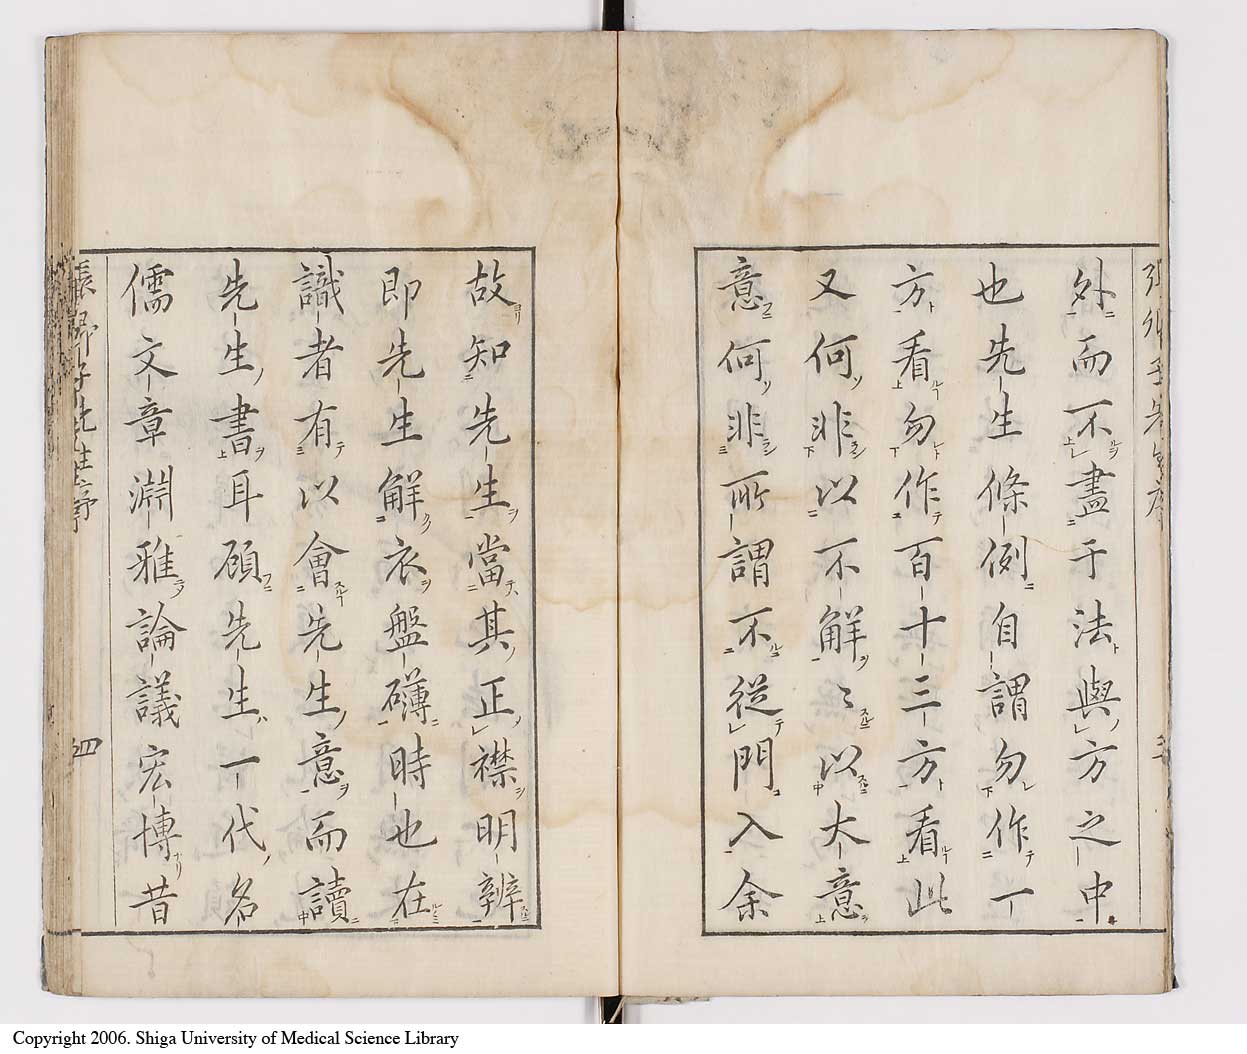 外而不盡于法與方之中
也先生條例自謂勿作一
方看勿作百十三方看此
又何非以不解〻以大意
意何非所謂不從門入余
故知先生當其正襟明辨
即先生解衣盤礴時也在
識者有以會先生意而讀
先生書耳頋先生一代名
儒文章淵雅論議宏博昔
張卿子先生序
四
Copyright 2006. Shiga University of Medical Science Library